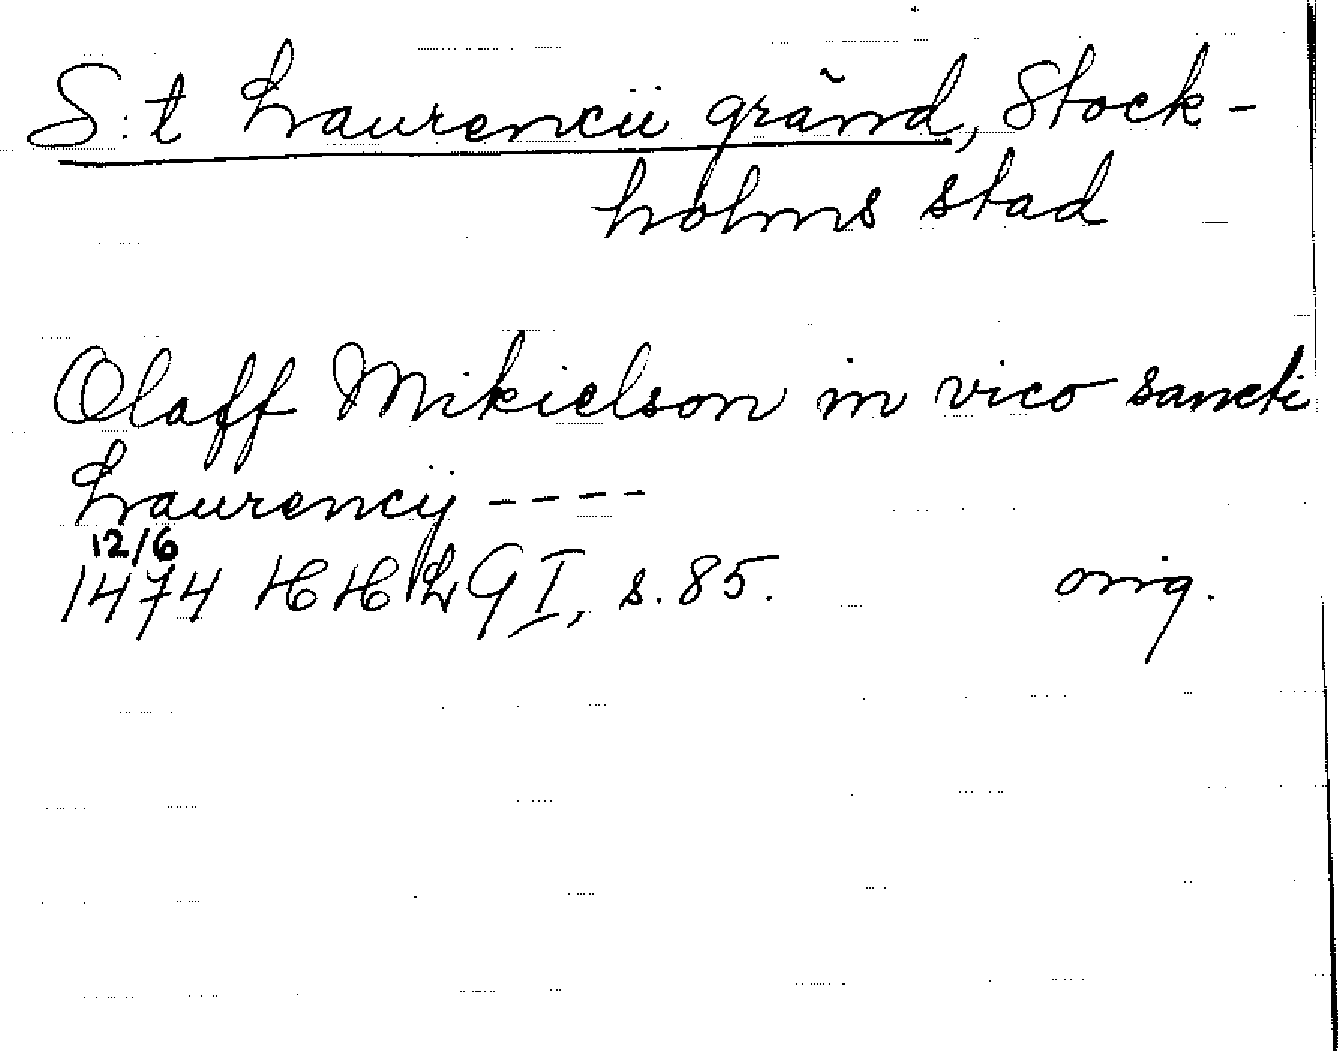 S:t Laurencii gränd, Stock-
holms stad
Olaff Mikielson in vico sancti
Laurencij ----
12/6
1474 HH LG I, s. 85. orig.